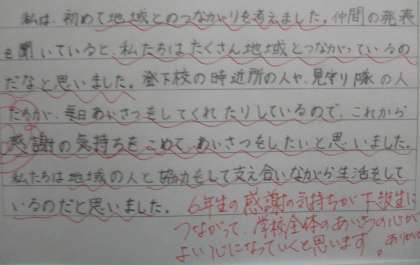 私は、初めて地域とのつながりを考えました。仲間の発表
を聞いていると、私たちはたくさん地域とつながっているの
だなと思いました。登下校の時近所の人や、見守り隊の人
たちが、毎日あいさつをしてくれたりしているので、これから
感謝の気持ちをこめて、あいさつをしたいと思いました。
私たちは地域の人と協力をして支え合いながら生活をして
いるのだと思いました。
6年生の感謝の気持ちが下級生に
つながって、学校全体のあいさつの心が
よい心になっていくと思います。ありがとう